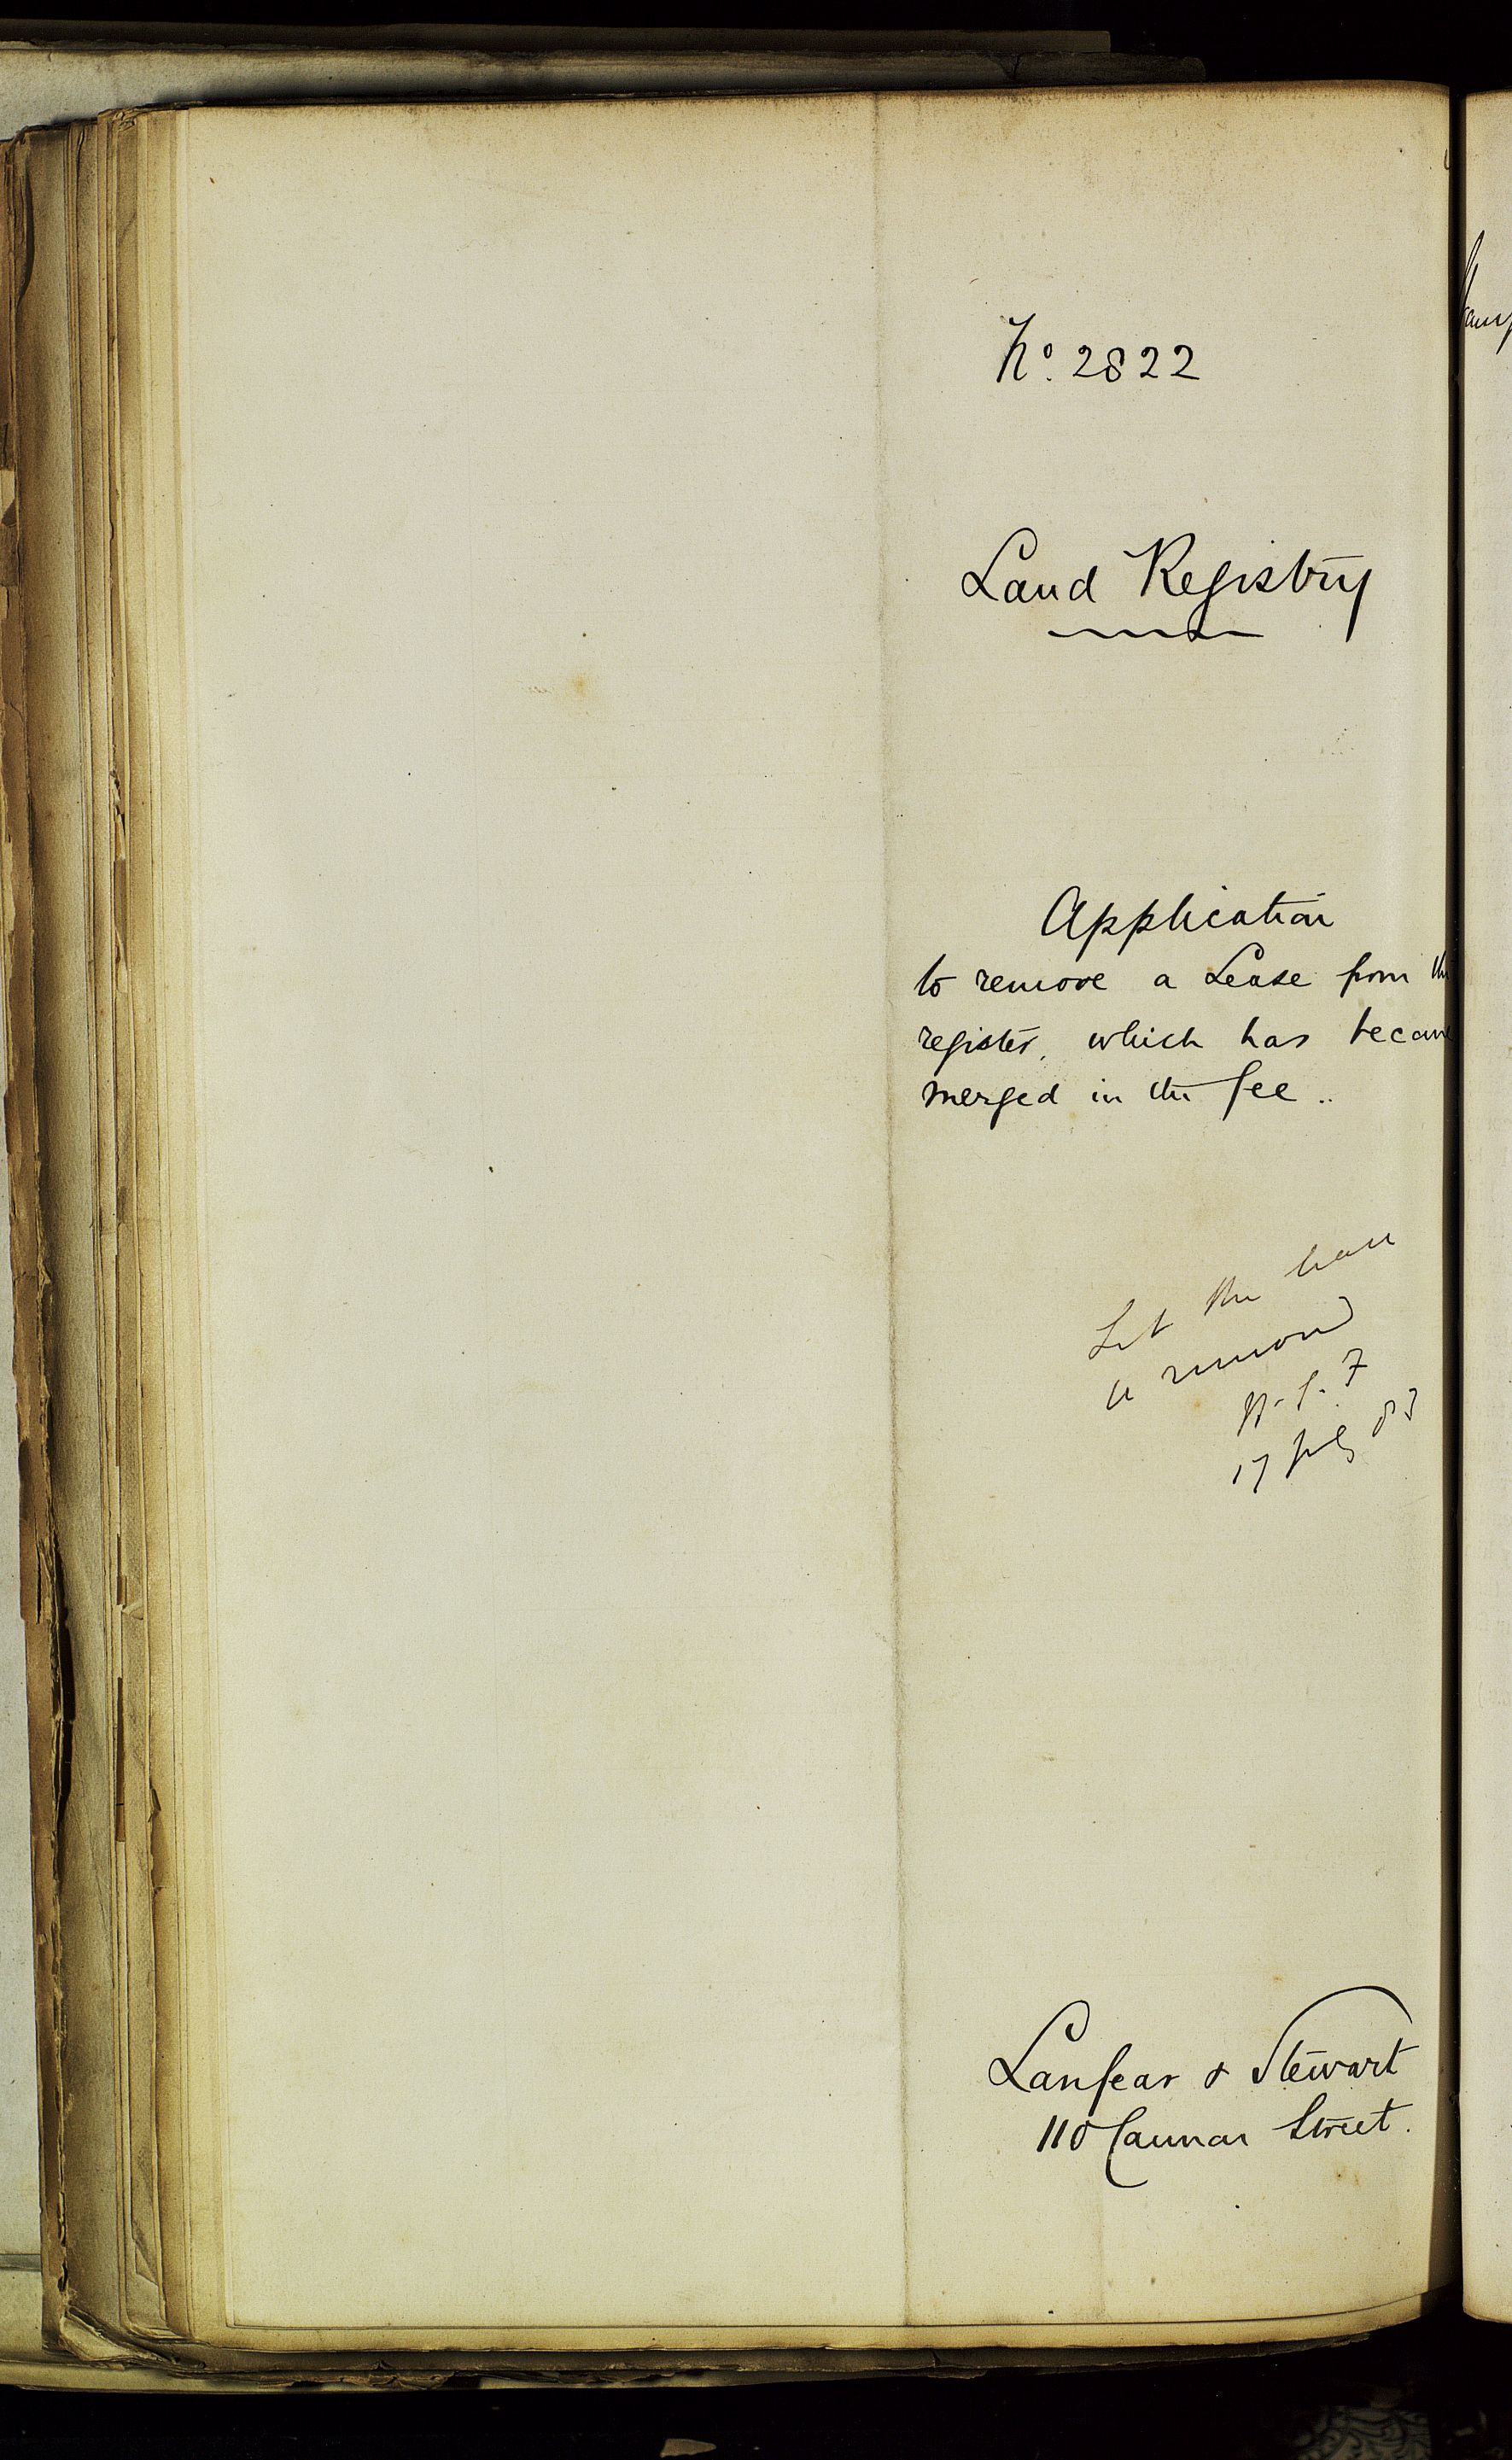 No. 2822
Land Registry
Application
to remove a Lease from the
register, which has become
merged in the fee..
Let the lease
be removed
17 July 83
Lanfear & Stewart
110 Cannon Street.